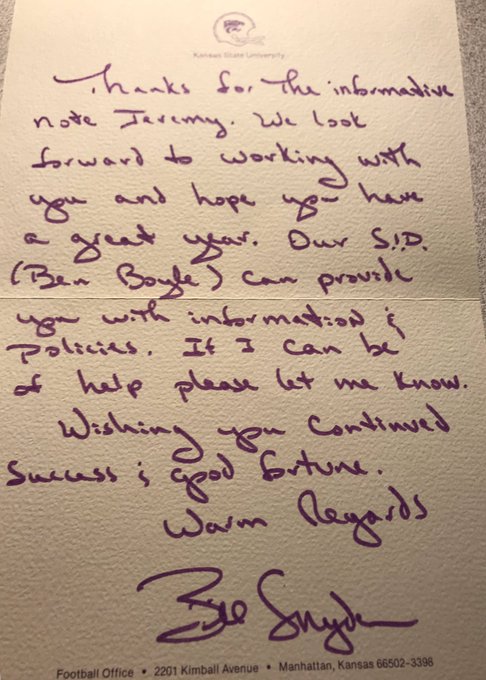 Kansas State University
Thanks for the informative
note Jeremy. We look
forward to working with
you and hope you have
a great year. Our S.I.D.
(Ben Boyle) can provide
you with information &
policies. If I can be
of help please let me know.
Wishing you continued
success & good fortune.
Warm Regards
Bill Snyder
Football Office • 2201 Kimball Avenue • Manhattan, Kansas 66502-3398